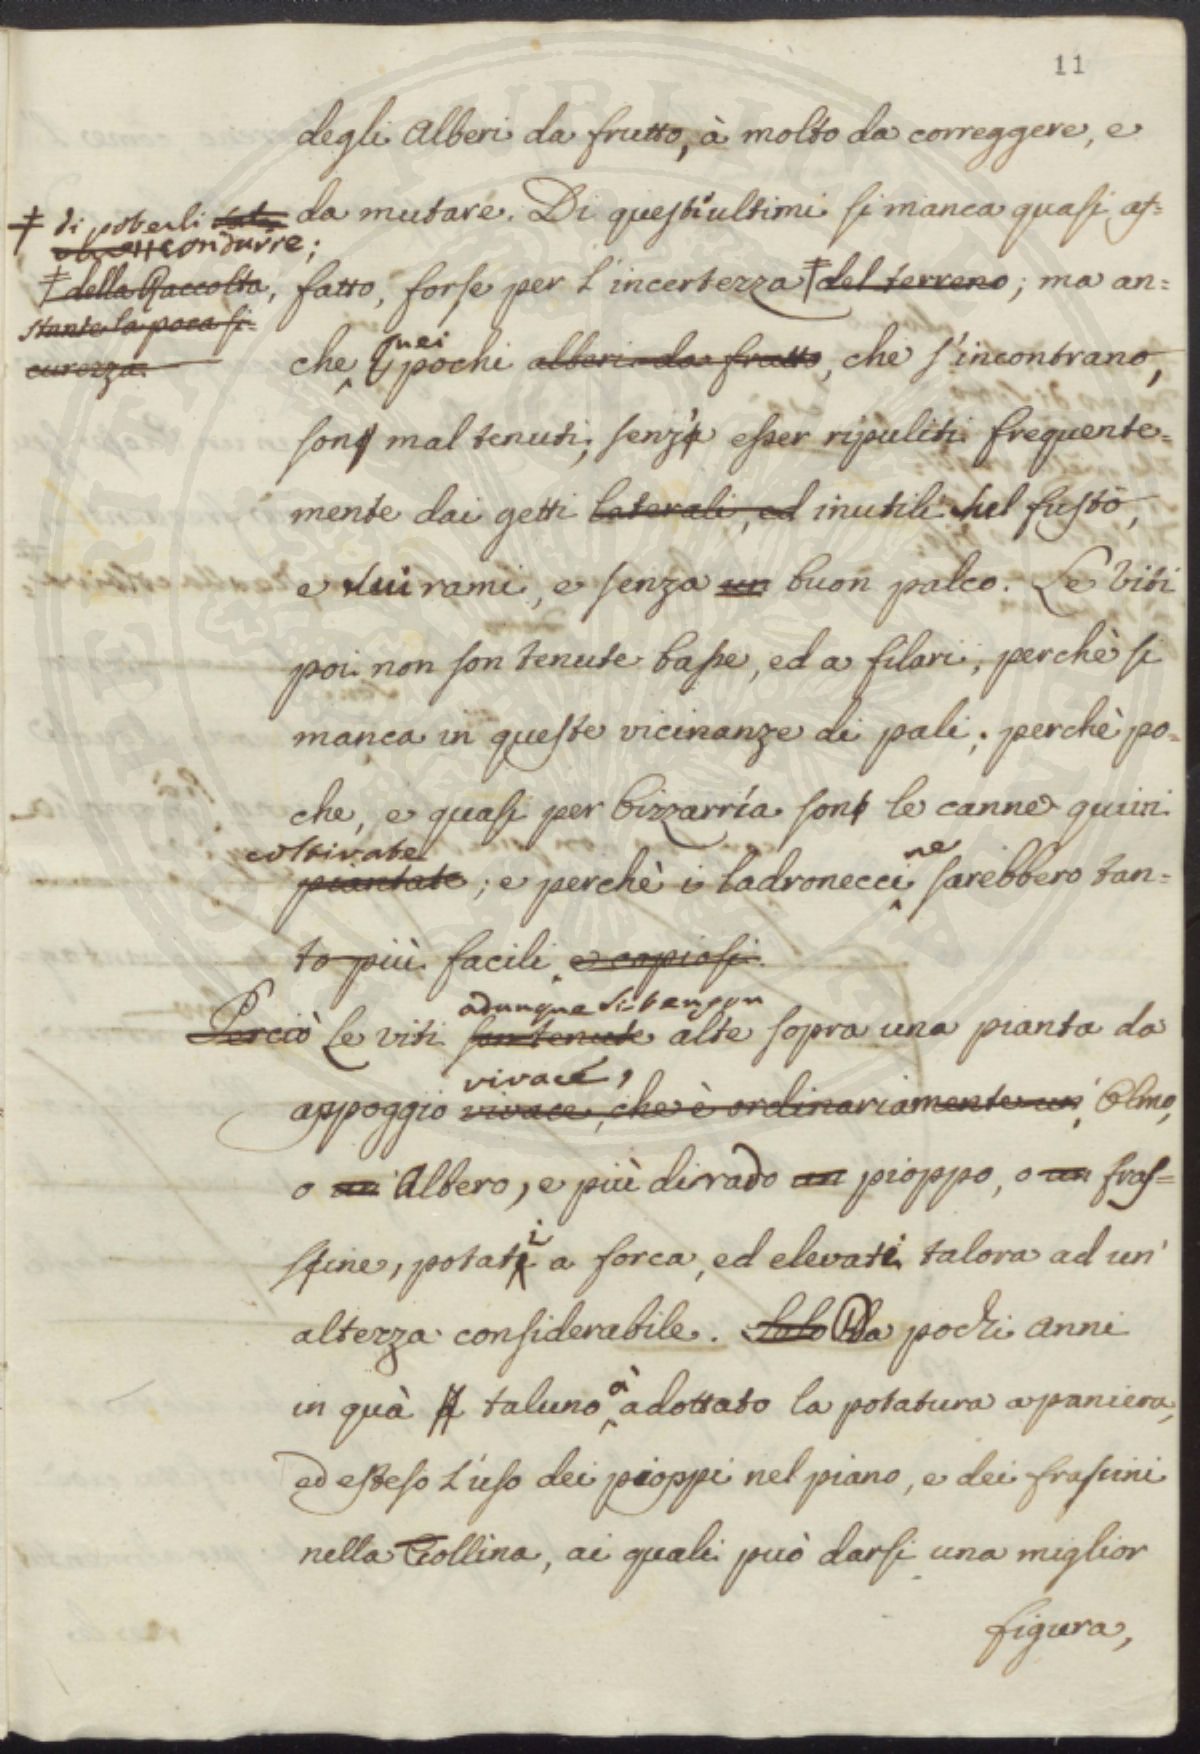 11
degli Alberi da frutto, à molto da correggere, e
da mutare. Di questi ultimi si manca quasi af=
‡ di poterli
condurre;
‡ della Raccolta,
stante la poca si=
curezza.
fatto, forse per l'incertezza ‡ del terreno; ma an=
che nei pochi alberi da frutto, che s'incontrano,
son mal tenuti, senz' esser ripuliti frequente=
mente dai getti laterali, ed inutili sul fusto,
e sui rami, e senza un buon palco. Le Viti
poi non son tenute basse, ed a filari, perchè si
manca in queste vicinanze di pali; perchè po=
che, e quasi per bizzarría son le canne quivi
coltivate
piantate; e perchè i ladronecci ne sarebbero tan=
to più facili e copiosi.
adunque si tengon
Perciò Le viti son tenute alte sopra una pianta da
vivace,
appoggio vivace, che è ordinariamente un' Olmo,
o un Albero, e più di rado un pioppo, o un fras=
sine, potati a forca, ed elevati talora ad un'
altezza considerabile. Solo Da pochi anni
in quà taluno à adottato la potatura a paniera,
ed esteso l'uso dei pioppi nel piano, e dei frassini
nella Collina, ai quali può darsi una miglior
figura,